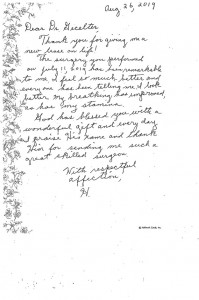 Aug 26, 2019
Dear Dr Gecelter
Thank you for giving me a
new lease on life!
The surgery you performed
on July 11, 2019 has been remarkable
to me. I feel so much better and
every one has been telling me I look
better. My breathing has improved,
as has my stamina.
God has blessed you with a
wonderful gift and every day
I praise His name and thank
Him for sending me such a
great skilled surgeon.
With respectful
affection,